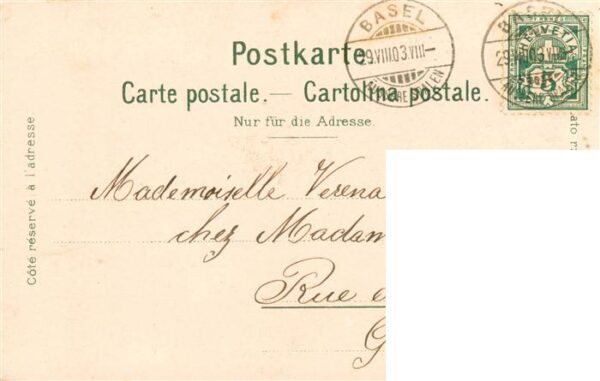 Postkarte
Carte postale. — Cartolina postale.
Nur für die Adresse.
BASEL
29.VIII.03.VIII—
HELVETIA
5
Côté réservé à l'adresse
Mademoiselle Verena
chez Madam
Rue